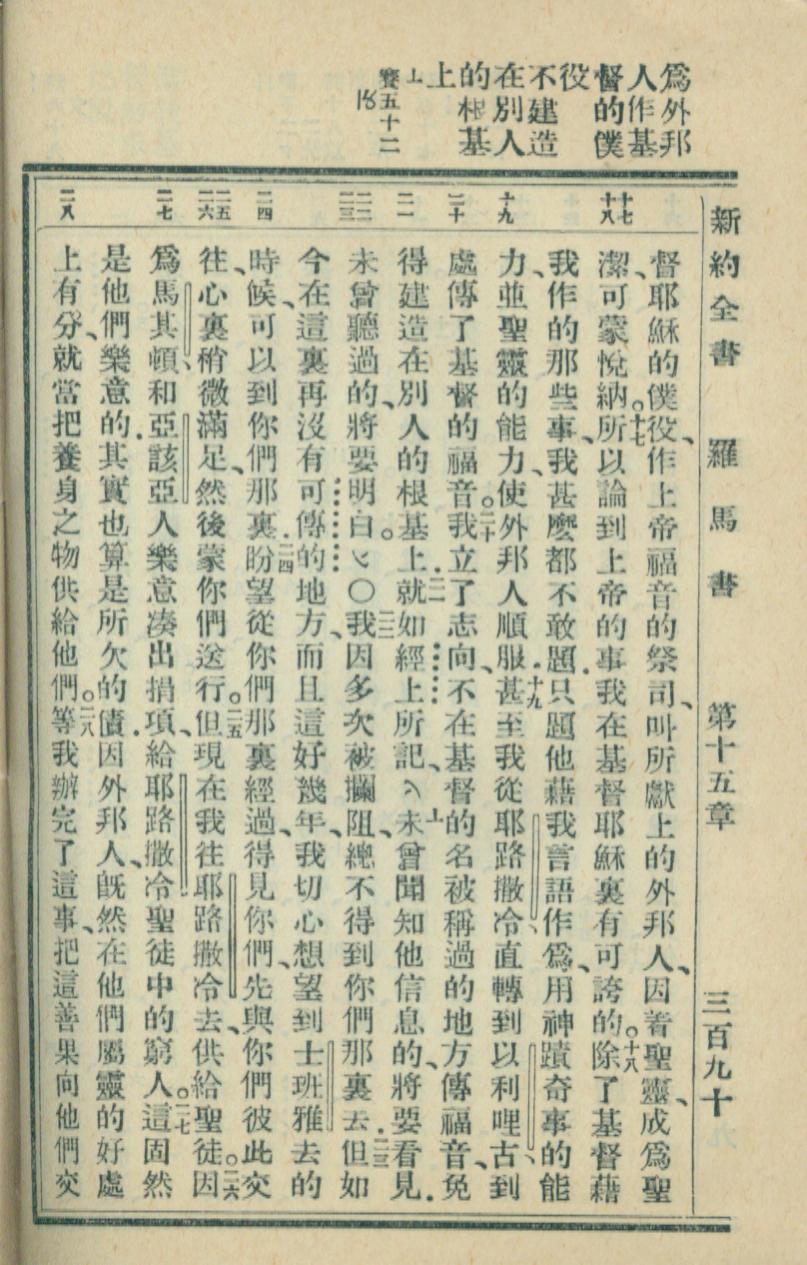 爲外邦
人作基
督的僕
役
不建造
在別人
的根基
上
上
賽五十二
15
新約全書 羅馬書 第十五章 三百九十
十七
十八
十九
二十
二一
二二
二三
二四
二五
二六
二七
二八
督耶穌的僕役、作上帝福音的祭司、叫所獻上的外邦人、因着聖靈、成爲聖
潔、可蒙悅納。十七所以論到上帝的事、我在基督耶穌裏有可誇的。十八除了基督藉
我作的那些事、我甚麼都不敢題、只題他藉我言語作爲、用神蹟奇事的能
力、並聖靈的能力、使外邦人順服、十九甚至我從耶路撒冷直轉到以利哩古、到
處傳了基督的福音。二十我立了志向、不在基督的名被稱過的地方傳福音、免
得建造在別人的根基上、二一就如經上所記、上未曾聞知他信息的、將要看見、
未曾聽過的、將要明白。○二二我因多次被攔阻、總不得到你們那裏去、二三但如
今在這裏再沒有可傳的地方、而且這好幾年、我切心想望到士班雅去的
時候、可以到你們那裏、二四盼望從你們那裏經過、得見你們、先與你們彼此交
往、心裏稍微滿足、然後蒙你們送行。二五但現在我往耶路撒冷去、供給聖徒。二六因
爲馬其頓、和亞該亞人樂意凑出捐項、給耶路撒冷聖徒中的窮人。二七這固然
是他們樂意的、其實也算是所欠的債、因外邦人、旣然在他們屬靈的好處
上有分、就當把養身之物供給他們。二八等我辦完了這事、把這善果向他們交